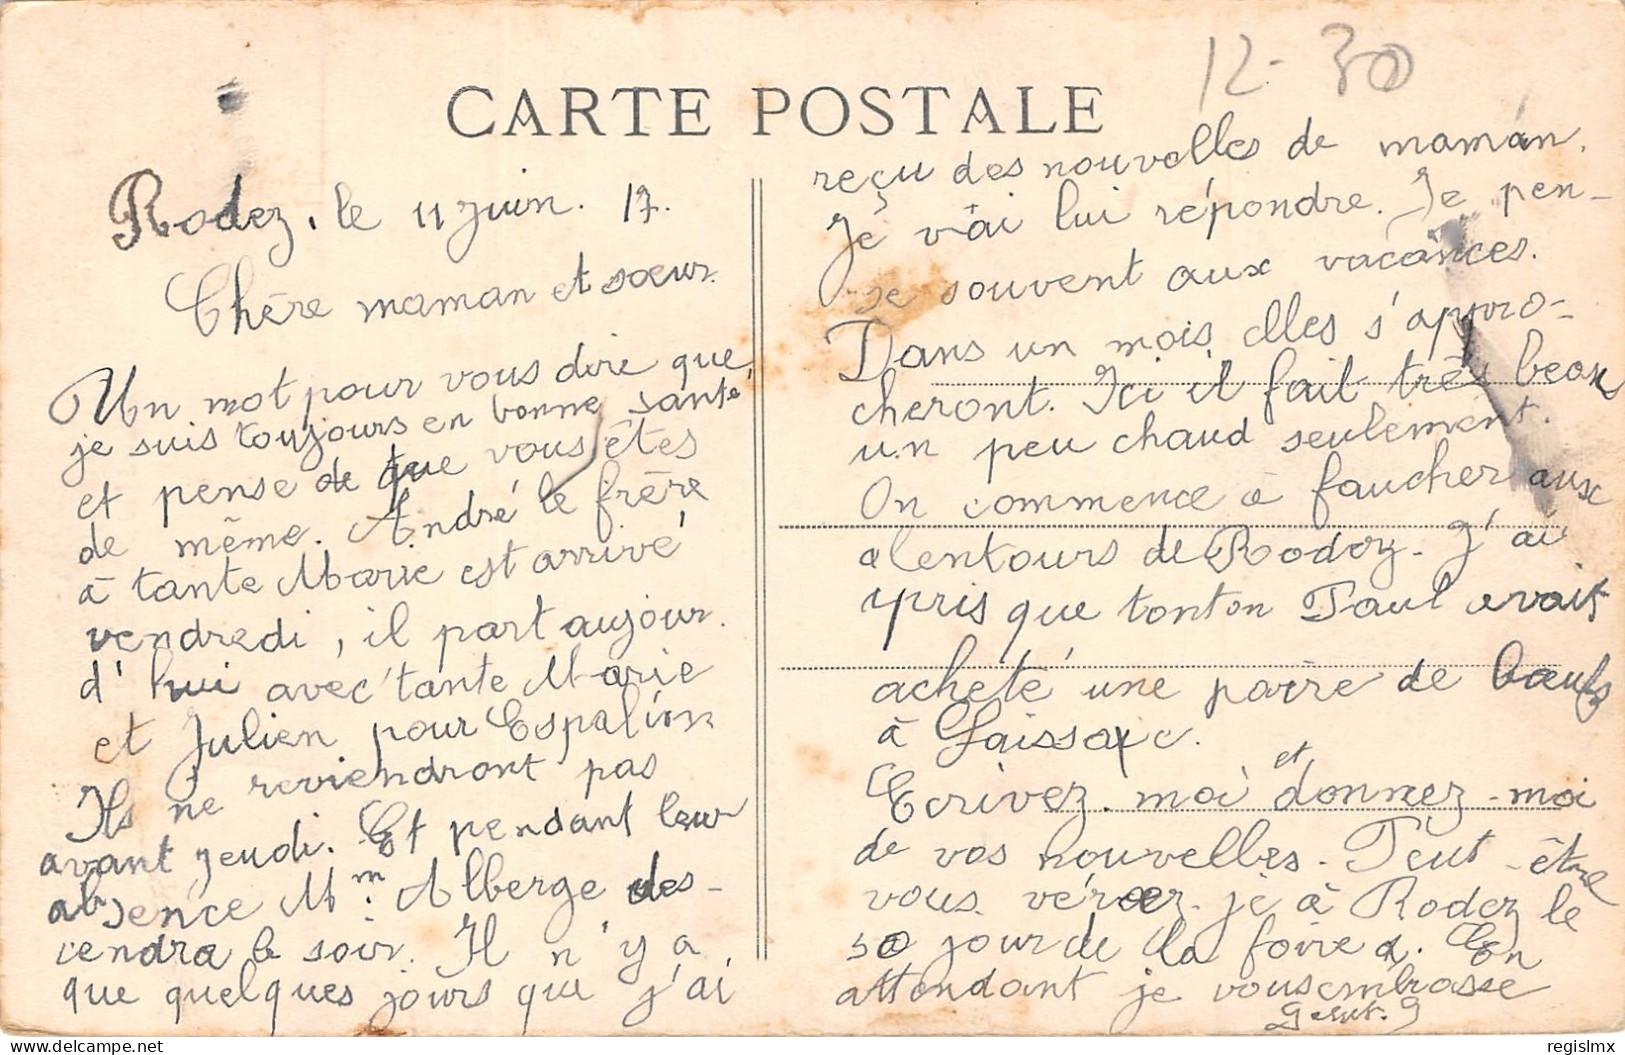 12-30
CARTE POSTALE
Rodez, le 11 juin. 17.
Chère maman et sœur.
Un mot pour vous dire que
je suis toujours en bonne santé
et pense de que vous êtes
de même. André le frère
à tante Marie est arrivé
vendredi, il part aujour.
d'hui avec tante Marie
et Julien pour Espalion
Ils ne reviendront pas
avant jeudi. Et pendant leur
absence Mm. Alberge des-
cendra le soir. Il n'y a
que quelques jours que j'ai
reçu des nouvelles de maman.
Je vai lui répondre. Je pen-
se souvent aux vacances.
Dans un mois elles s'appro-
cheront. Ici il fait très beau
un peu chaud seulement.
On commence à faucher aux
alentours de Rodez. J'ai
apris que tonton Paul avait
acheté une paire de bœufs
à Laissac.
Ecrivez-moi et donnez-moi
de vos nouvelles. Peut-être
vous verrer-je à Rodez le
30 jour de la foire. En
attendant je vous embrasse
regislmx
delcampe.net